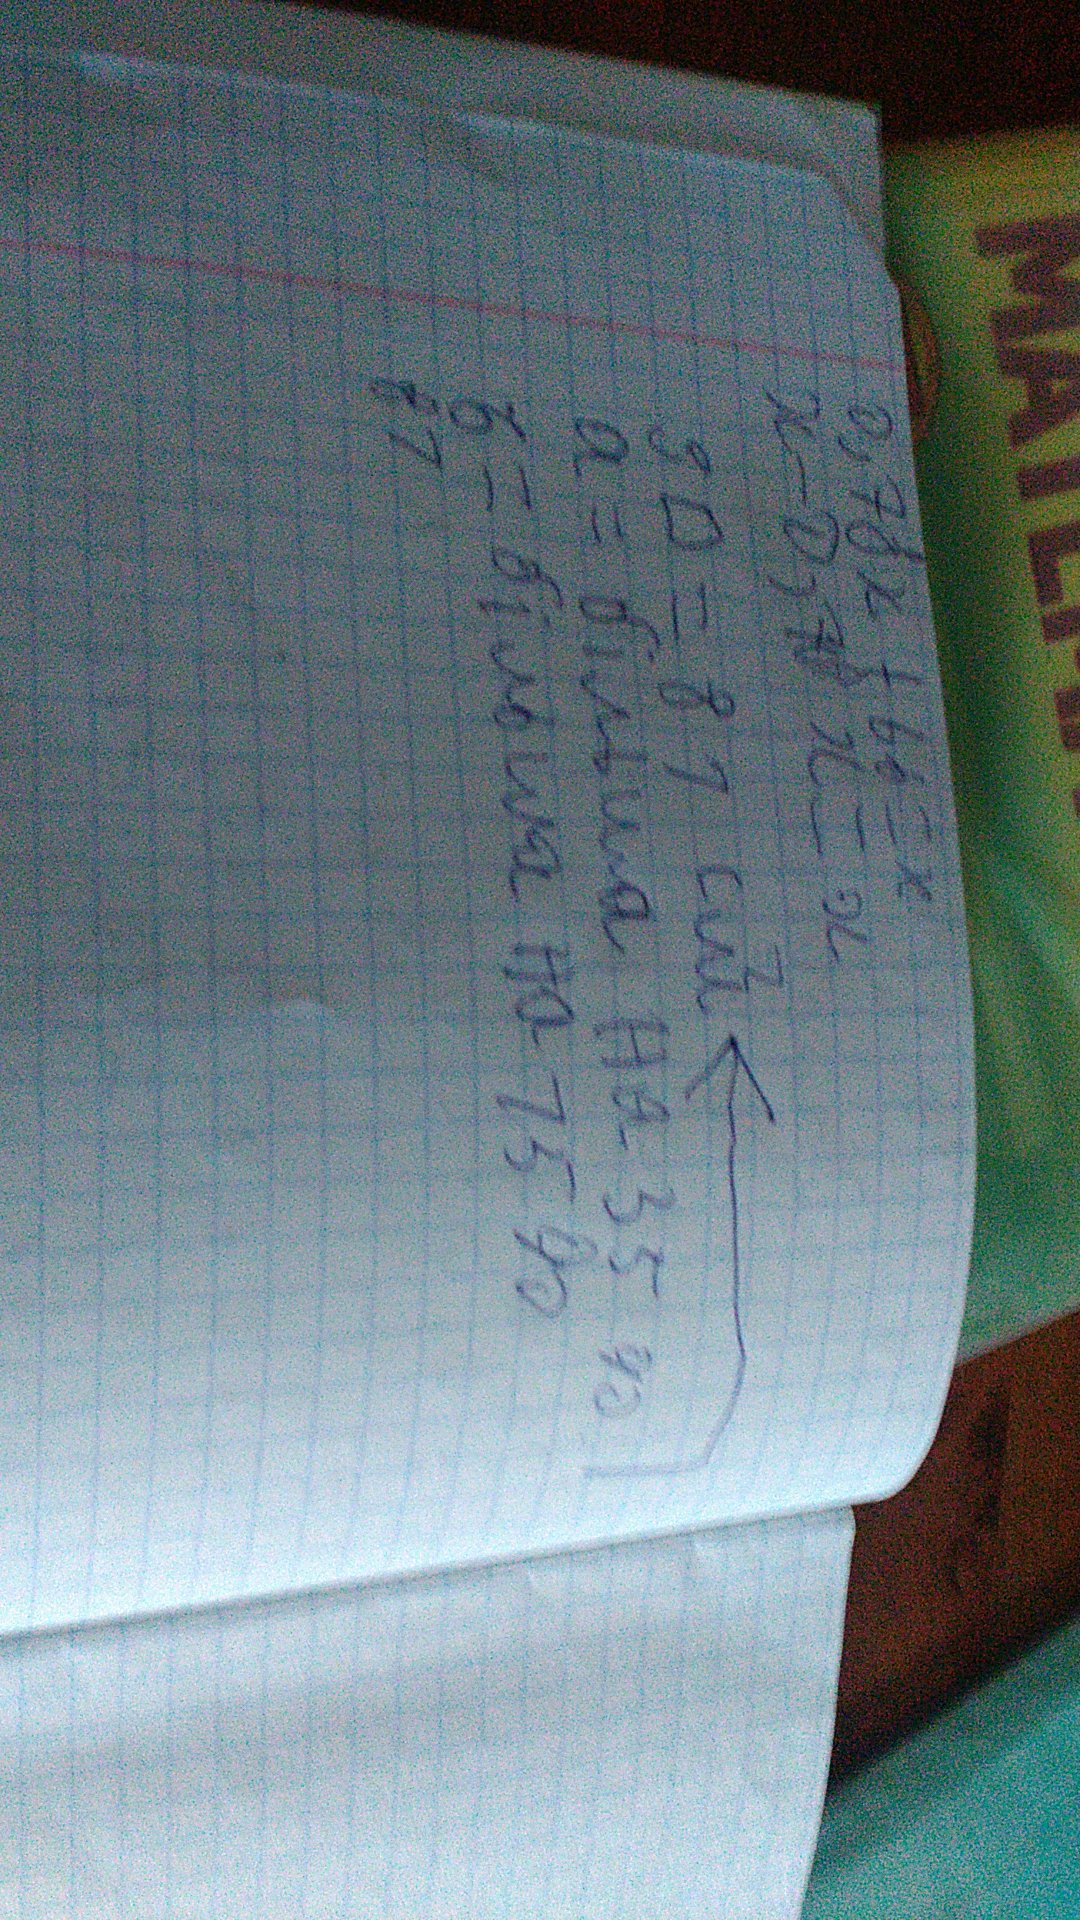 0,78x+66=x
x-0,78x=x
SD=81 см²
a=більша на 35%
б=більша на 75%
87
МАТЕМ